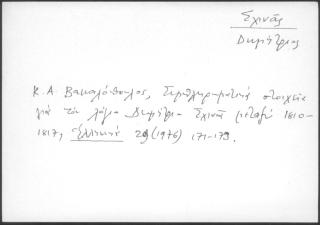 Σχινᾶς
Δημήτριος
Κ. Α. Βακαλόπουλος, Συμπληρωματικά στοιχεία
γιά τόν λόγιο Δημήτριο Σχινᾶ μεταξύ 1810-
1817, Ἑλληνικά 29 (1976) 171-179.